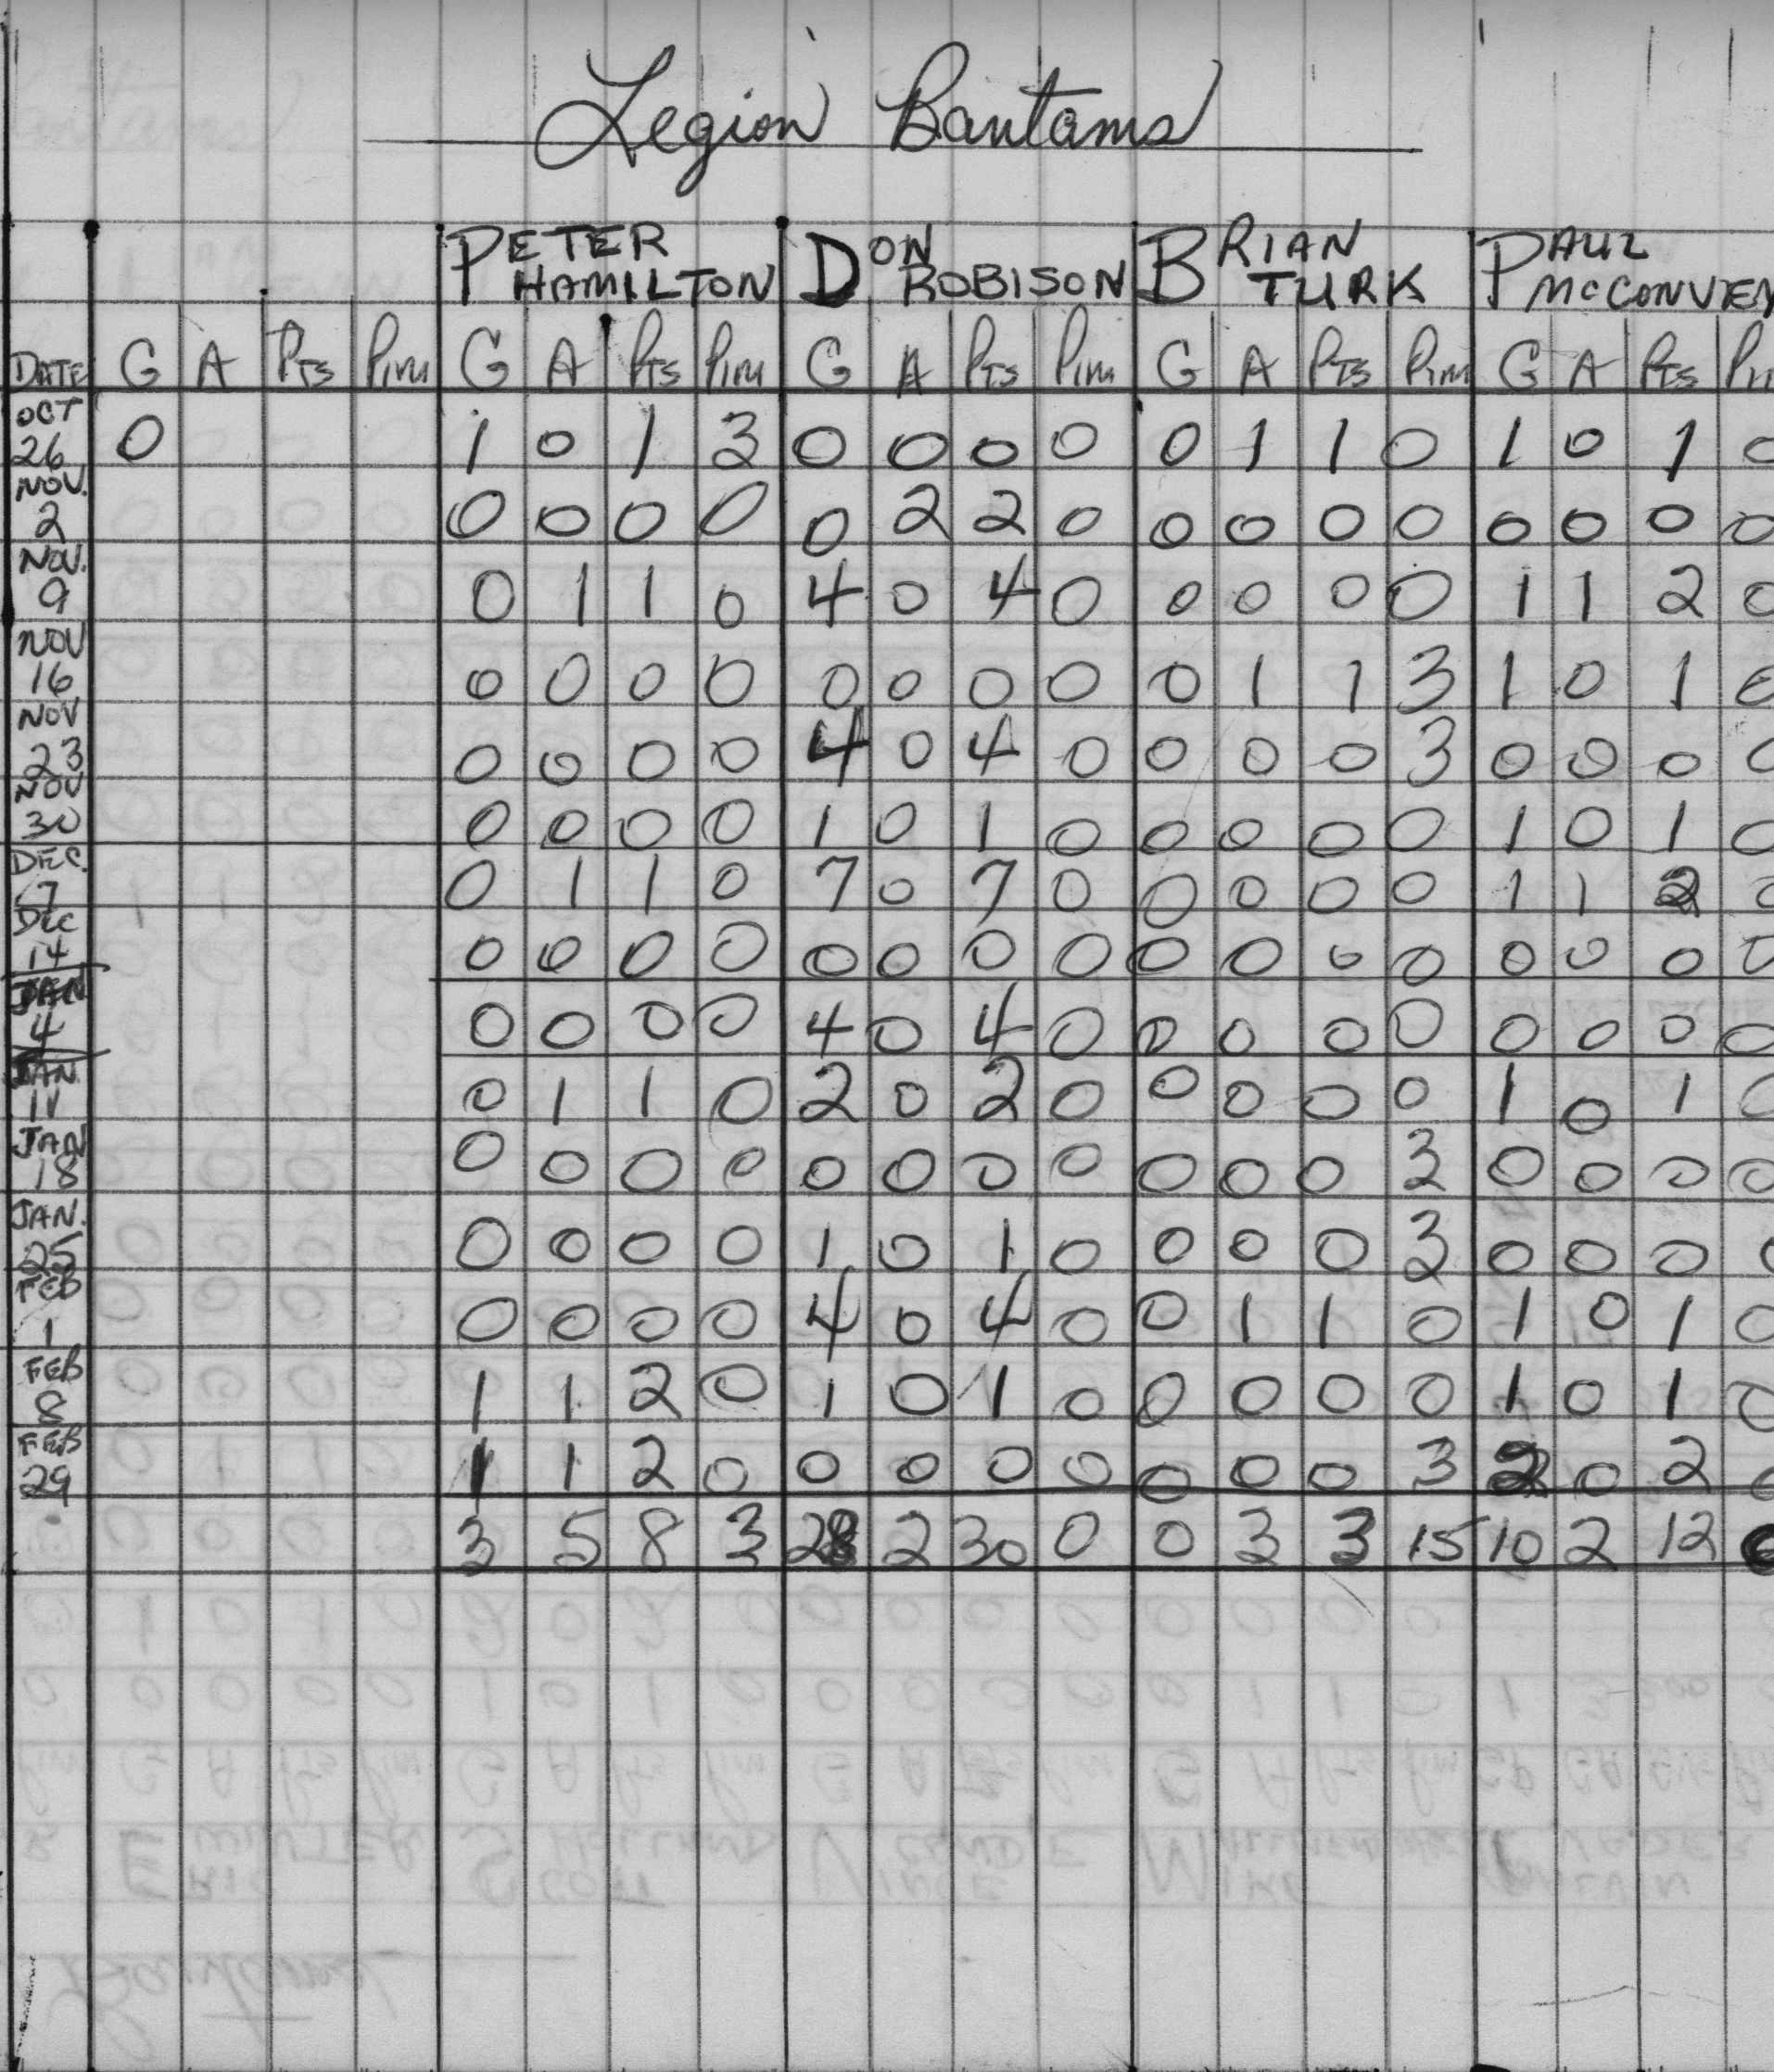 Legion Bantams
PETER HAMILTON DON ROBISON BRIAN TURK PAUL McCONVEY
DATE G A PTS PIM G A PTS PIM G A PTS PIM G A PTS PIM G A PTS
OCT 26 0 1 0 1 3 0 0 0 0 0 1 1 0 1 0 1 0
NOV. 2 0 0 0 0 0 2 2 0 0 0 0 0 0 0 0 0
NOV. 9 0 1 1 0 4 0 4 0 0 0 0 0 1 1 2 0
NOV 16 0 0 0 0 0 0 0 0 0 1 1 3 1 0 1 0
NOV 23 0 0 0 0 4 0 4 0 0 0 0 3 0 0 0 0
NOV 30 0 0 0 0 1 0 1 0 0 0 0 0 1 0 1 0
DEC. 7 0 1 1 0 7 0 7 0 0 0 0 0 1 1 2 0
Dec 14 0 0 0 0 0 0 0 0 0 0 0 0 0 0 0 0
JAN 4 0 0 0 0 4 0 4 0 0 0 0 0 0 0 0 0
JAN 11 0 1 1 0 2 0 2 0 0 0 0 0 1 0 1 0
JAN 18 0 0 0 0 0 0 0 0 0 0 0 3 0 0 0 0
JAN. 25 0 0 0 0 1 0 1 0 0 0 0 3 0 0 0 0
FEB 1 0 0 0 0 4 0 4 0 0 1 1 0 1 0 1 0
FEB 8 1 1 2 0 1 0 1 0 0 0 0 0 1 0 1 0
FEB 29 1 1 2 0 0 0 0 0 0 0 0 3 2 0 2 0
3 5 8 3 28 2 30 0 0 3 3 15 10 2 12 0